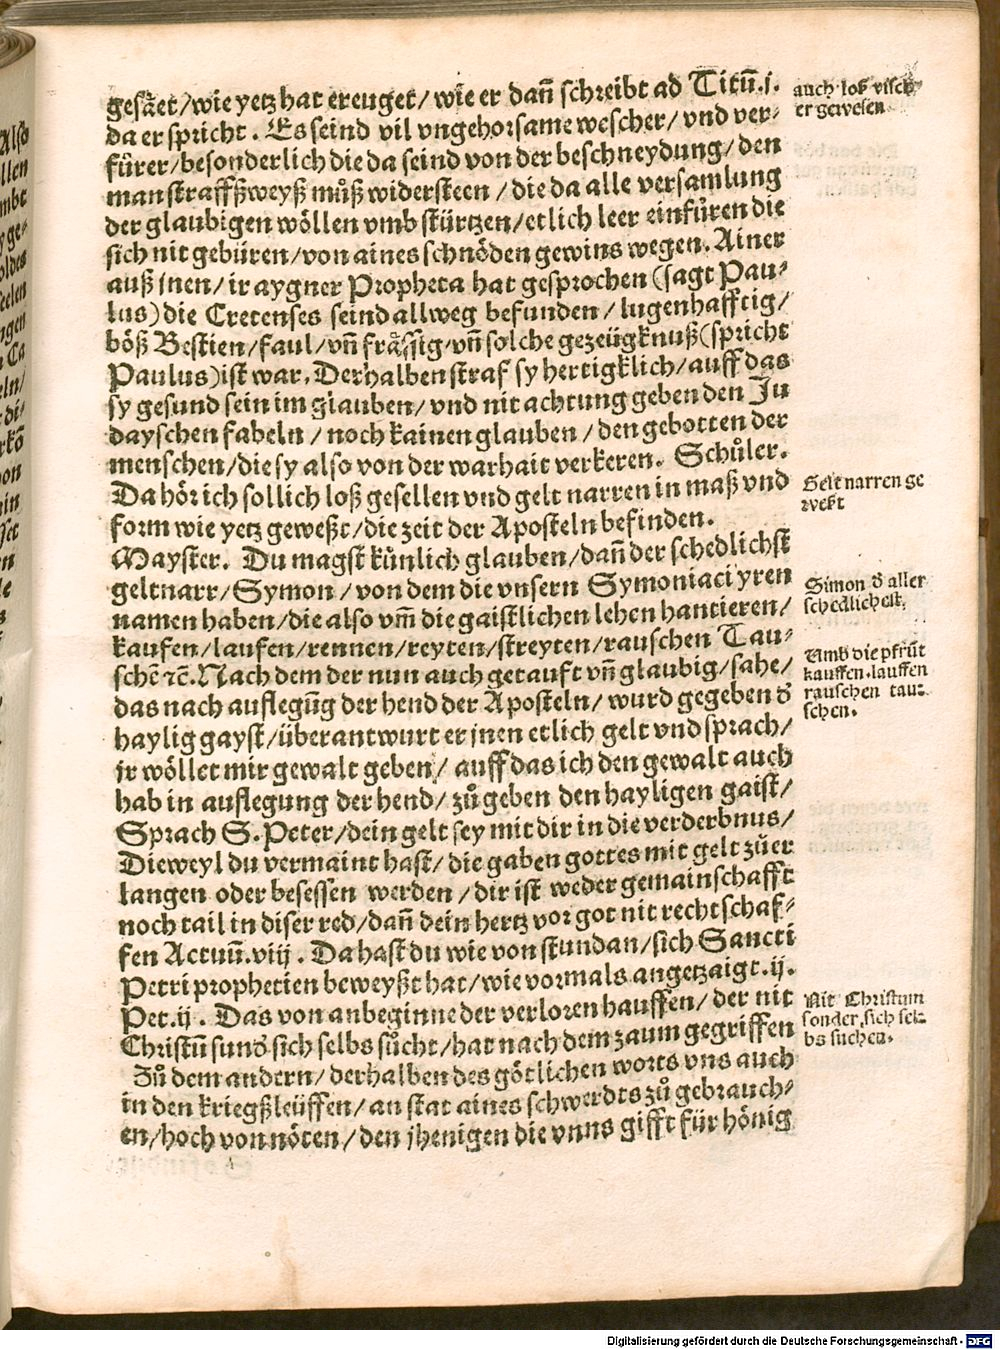 gesäet/wie yetz hat ereuget/wie er dañ schreibt ad Titũ.j.
da er spricht. Es seind vil vngehorsame wescher/vnd ver-
fürer/besonderlich die da seind von der beschneydung/den
man straffßweyß můß widersteen/die da alle versamlung
der glaubigen wöllen vmb stürtzen/etlich leer einfüren die
sich nit gebüren/von aines schnöden gewins wegen. Ainer
auß jnen/ir aygner Propheta hat gesprochen (sagt Pau-
lus) die Cretenses seind allweg befunden/lugenhafftig/
böß Bestien/faul/vñ frässig/vñ solche gezeügknuß (spricht
Paulus) ist war. Derhalben straf sy hertigklich/auff das
sy gesund sein im glauben/vnd nit achtung geben den Ju
dayschen fabeln/noch kainen glauben/den gebotten der
menschen/die sy also von der warhait verkeren. Schůler.
Da hör ich sollich loß gesellen vnd gelt narren in maß vnd
form wie yetz geweßt/die zeit der Aposteln befinden.
Mayster. Du magst künlich glauben/dañ der schedlichst
geltnarr/Symon/von dem die vnsern Symoniaci yren
namen haben/die also vm̃ die gaistlichen lehen hantieren/
kaufen/laufen/rennen/reyten/streyten/rauschen Tau-
schẽ ꝛc̃. Nach dem der nun auch getauft vñ glaubig/sahe/
das nach auflegũg der hend der Aposteln/wurd gegeben d̕
haylig gayst/überantwurt er jnen etlich gelt vnd sprach/
jr wöllet mir gewalt geben/auff das ich den gewalt auch
hab in auflegung der hend/zů geben den hayligen gaist/
Sprach S. Peter/dein gelt sey mit dir in die verderbnus/
Dieweyl du vermaint hast/die gaben gottes mit gelt zůer
langen oder besessen werden/dir ist weder gemainschafft
noch tail in diser red/dañ dein hertz vor got nit rechtschaf-
fen Actuũ.viij. Da hast du wie von stundan/sich Sancti
Petri prophetien beweyßt hat/wie vormals angetzaigt.ij.
Pet.ij. Das von anbeginne der verloren hauffen/der nit
Christũ sund̕ sich selbs sůcht/hat nach dem zaum gegriffen
Zů dem andern/derhalben des götlichen worts vns auch
in den kriegßleüffen/an stat aines schwerdts zů gebrauch-
en/hoch von nöten/den jhenigen die vnns gifft für hönig
auch loß visch
er gewesen
Gelt narren ge
wekt
Simon d̕ aller
schedlichest.
Vmb die pfrůt
kauffen. lauffen
rauschen tau-
schen.
Nit Christum
sonder sich sel-
bs suchen.
Digitalisierung gefördert durch die Deutsche Forschungsgemeinschaft - DFG